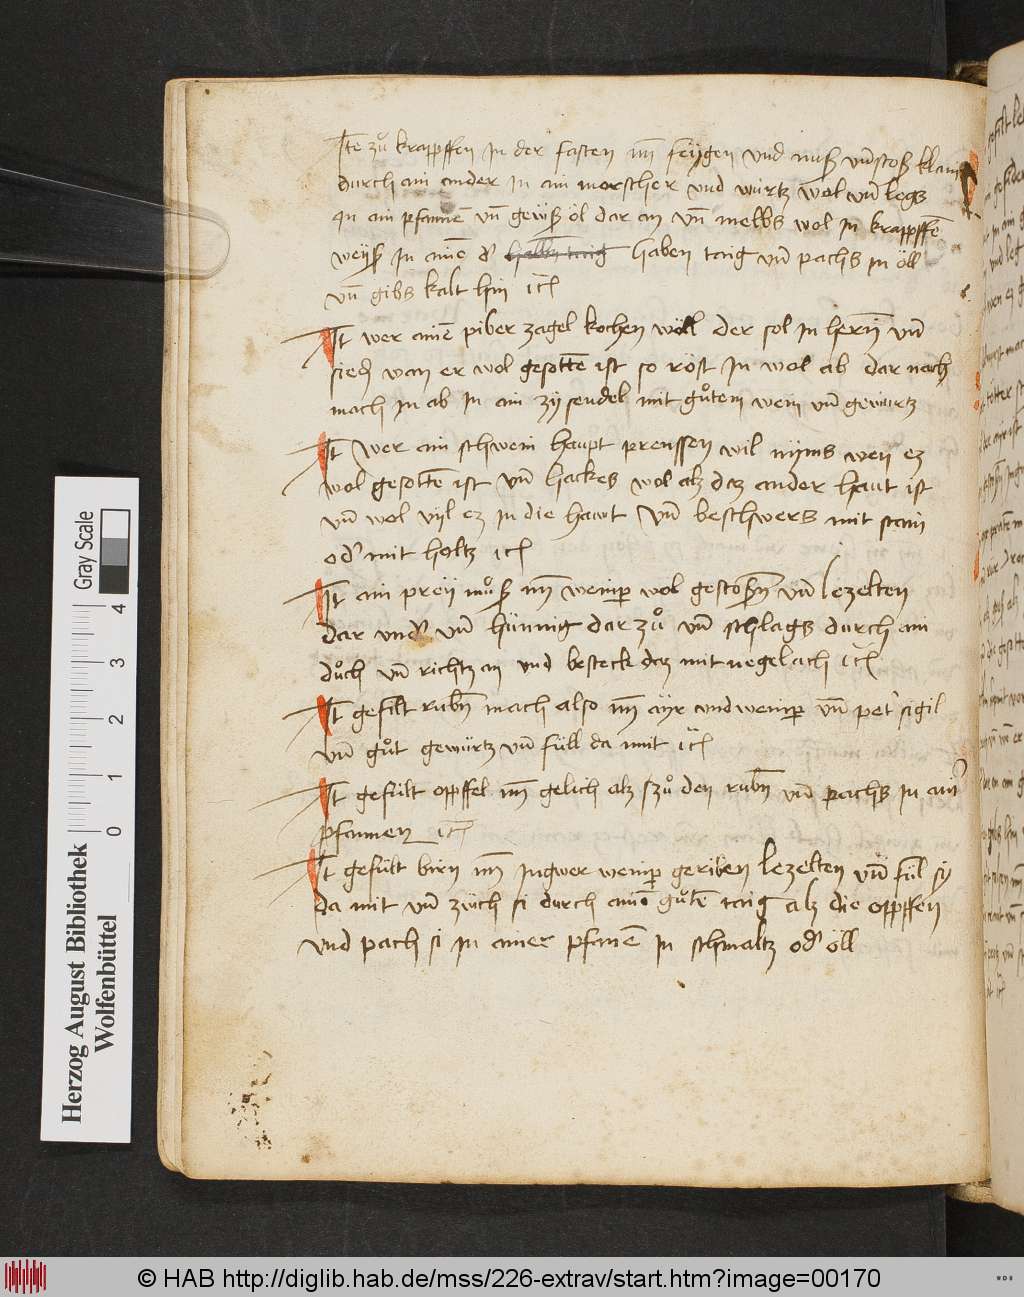 Ite zů krappffen in der fasten nȳ feÿgen vnd nuß vn̄ stoß klain
durch ain ander in ain morscher vnd würtz wol vn̄ legs
in ain pfannē vn̄ gewß öl dar an vn̄ melbs wol in krappffē
weÿß in ainē haben taig vn̄ pachs in öll
vn̄ gibs kalt hin
It wer ainē piber zagel kochen wöll der sol in vn̄
sied van er wol gesottē ist so röst in wol ab dar nach
mach in ab in ain zÿsendel mit gůtem wein vn̄ gewurtz
It wer ain schwein haupt prenssen wil nÿms wen ez
wol gesottē ist vn̄ hackes wol alz daz ander haut ist
vn̄ wol vÿl ez in die hawt vn̄ beschwers mit stain
od' mit holtz
It ain preÿ můß nȳ weinper wol gestoßn̄ vn̄ lezelten
dar vnd' vn̄ hünnig dar zů vn̄ schlags durch ain
důch vn̄ richtz an vnd besteck daz mit negelach
It gefilt rubn̄ mach also nȳ aÿr vnd weinper vn̄ pet' sigil
vn̄ gůt gewürtz vn̄ füll da mit
It gefült oppffel nȳ gelich alz zů den rubn̄ vn̄ pachs in ain'
pfannen
It gefült birn nȳ ingwer weinper geriben lezelten vn̄ fül sÿ
da mit vn̄ züch si durch ainē gůtē taig alz die oppffen
vnd pach si in ainer pfanē in schmaltz od' öll
Herzog August Bibliothek
Wolfenbüttel
Gray Scale
0 1 2 3 4
© HAB http://diglib.hab.de/mss/226-extrav/start.htm?image=00170